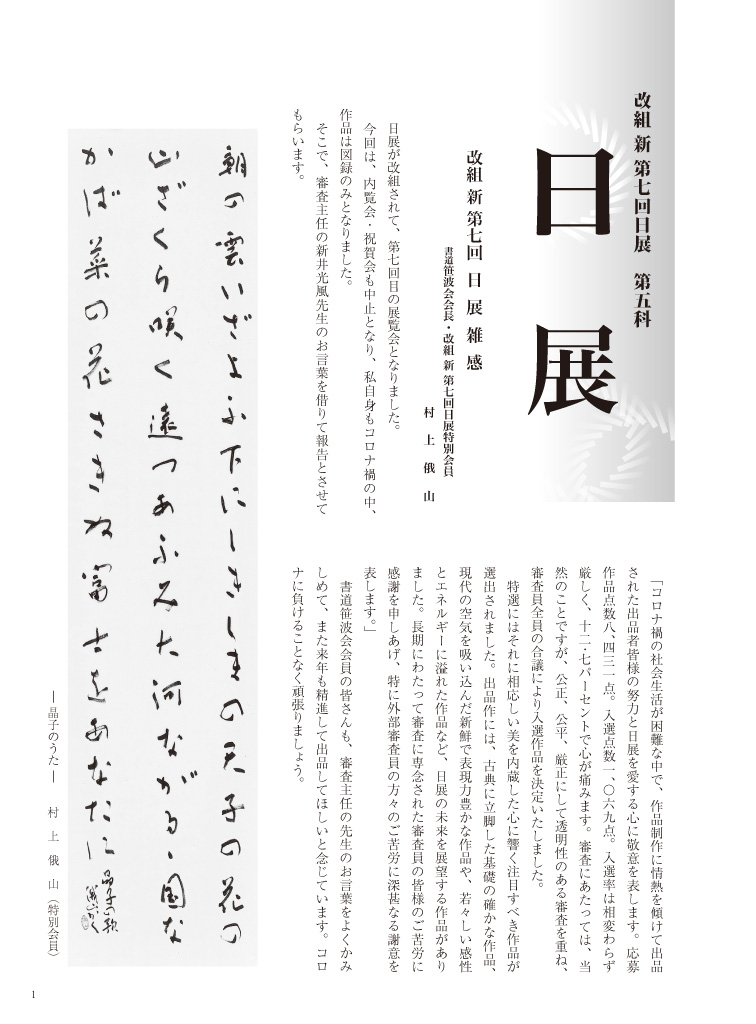 改組 新 第七回日展　第五科
日展
改組 新 第七回 日 展 雑 感
書道笹波会会長・改組 新 第七回日展特別会員
村 上 俄 山
日展が改組されて、第七回目の展覧会となりました。
今回は、内覧会・祝賀会も中止となり、私自身もコロナ禍の中、
作品は図録のみとなりました。
そこで、審査主任の新井光風先生のお言葉を借りて報告とさせて
もらいます。
「コロナ禍の社会生活が困難な中で、作品制作に情熱を傾けて出品
された出品者皆様の努力と日展を愛する心に敬意を表します。応募
作品点数八、四三一点。入選点数一、〇六九点。入選率は相変わらず
厳しく、十二・七パーセントで心が痛みます。審査にあたっては、当
然のことですが、公正、公平、厳正にして透明性のある審査を重ね、
審査員全員の合議により入選作品を決定いたしました。
特選にはそれに相応しい美を内蔵した心に響く注目すべき作品が
選出されました。出品作には、古典に立脚した基礎の確かな作品、
現代の空気を吸い込んだ新鮮で表現力豊かな作品や、若々しい感性
とエネルギーに溢れた作品など、日展の未来を展望する作品があり
ました。長期にわたって審査に専念された審査員の皆様のご苦労に
感謝を申しあげ、特に外部審査員の方々のご苦労に深甚なる謝意を
表します。」
書道笹波会会員の皆さんも、審査主任の先生のお言葉をよくかみ
しめて、また来年も精進して出品してほしいと念じています。コロ
ナに負けることなく頑張りましょう。
朝の雲いざよふ下にしきしまの天子の花の
山ざくら咲く遠つあふみた河ながるゝ国な
かば菜の花さきぬ富士をあなたに
晶子の歌
俄山かく
― 晶子のうた ―　村 上 俄 山（特別会員）
1